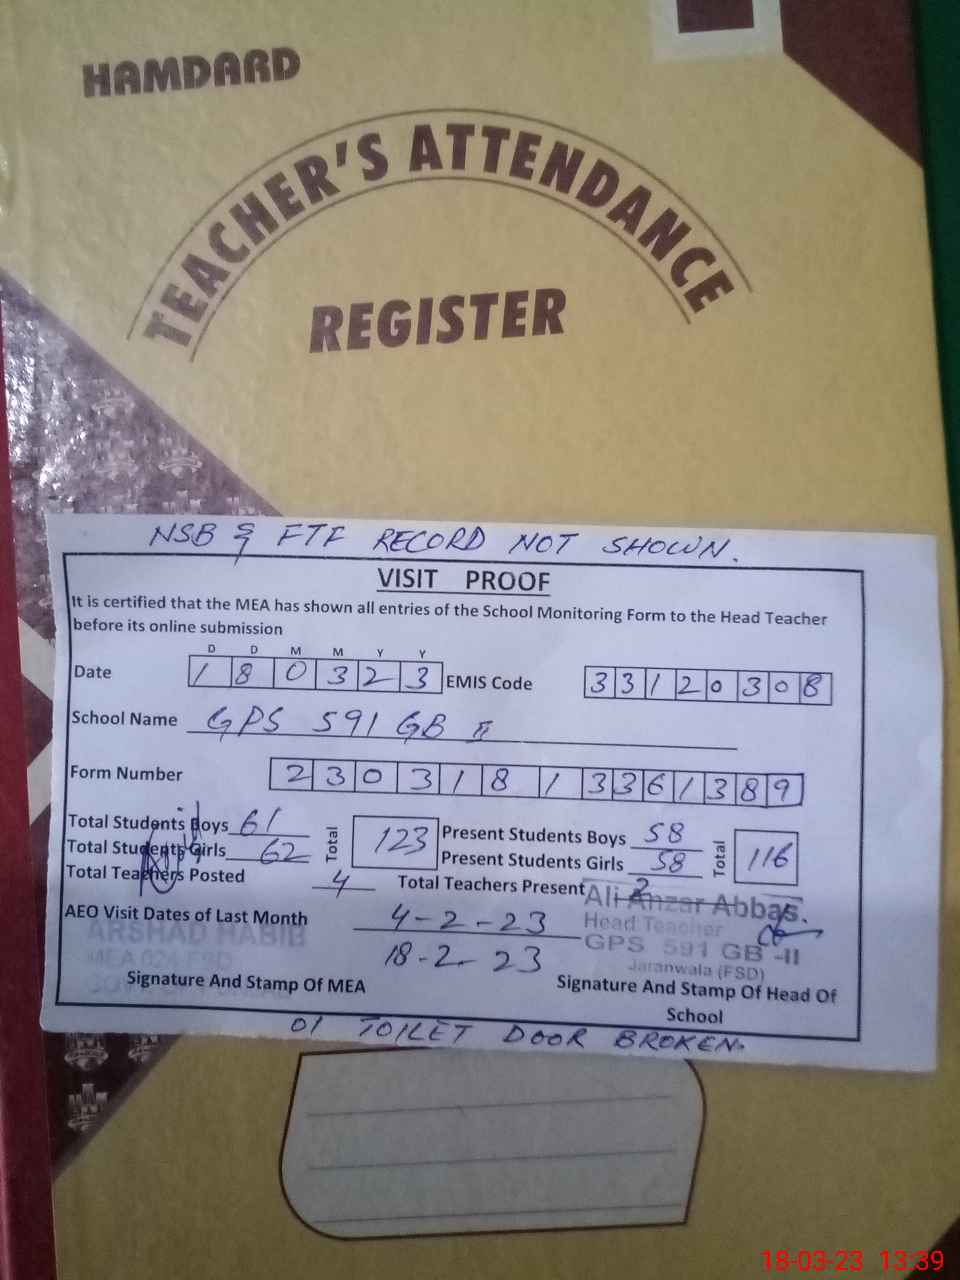 HAMDARD
TEACHER'S ATTENDANCE
REGISTER
NSB & FTF RECORD NOT SHOWN.
VISIT PROOF
It is certified that the MEA has shown all entries of the School Monitoring Form to the Head Teacher
before its online submission
D D M M Y Y
Date 1 8 0 3 2 3 EMIS Code 3 3 1 2 0 3 0 8
School Name GPS 591 GB II
Form Number 2 3 0 3 1 8 1 3 3 6 1 3 8 9
Total Students Boys 61 Total 123 Present Students Boys 58 Total 116
Total Students Girls 62 Present Students Girls 58
Total Teachers Posted 4 Total Teachers Present 2
Ali Anzar Abbas.
AEO Visit Dates of Last Month 4-2-23 Head Teacher
ARSHAD HABIB GPS 591 GB -II
MEA 024 FSD 18-2-23 Jaranwala (FSD)
Signature And Stamp Of MEA Signature And Stamp Of Head Of
School
01 TOILET DOOR BROKEN.
18-03-23 13:39